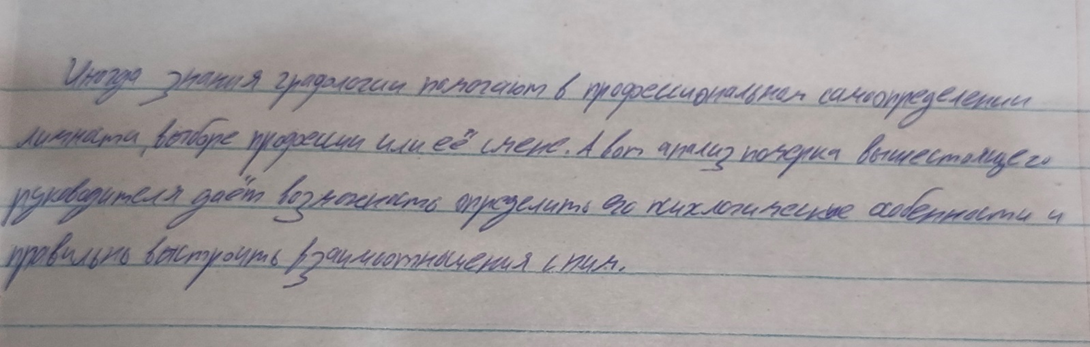 Иногда знания графологии помогают в профессиональном самоопределении
личности, выборе профессии или её смене. А вот анализ почерка вышестоящего
руководителя даёт возможность определить его психологические особенности и
правильно выстроить взаимоотношения с ним.